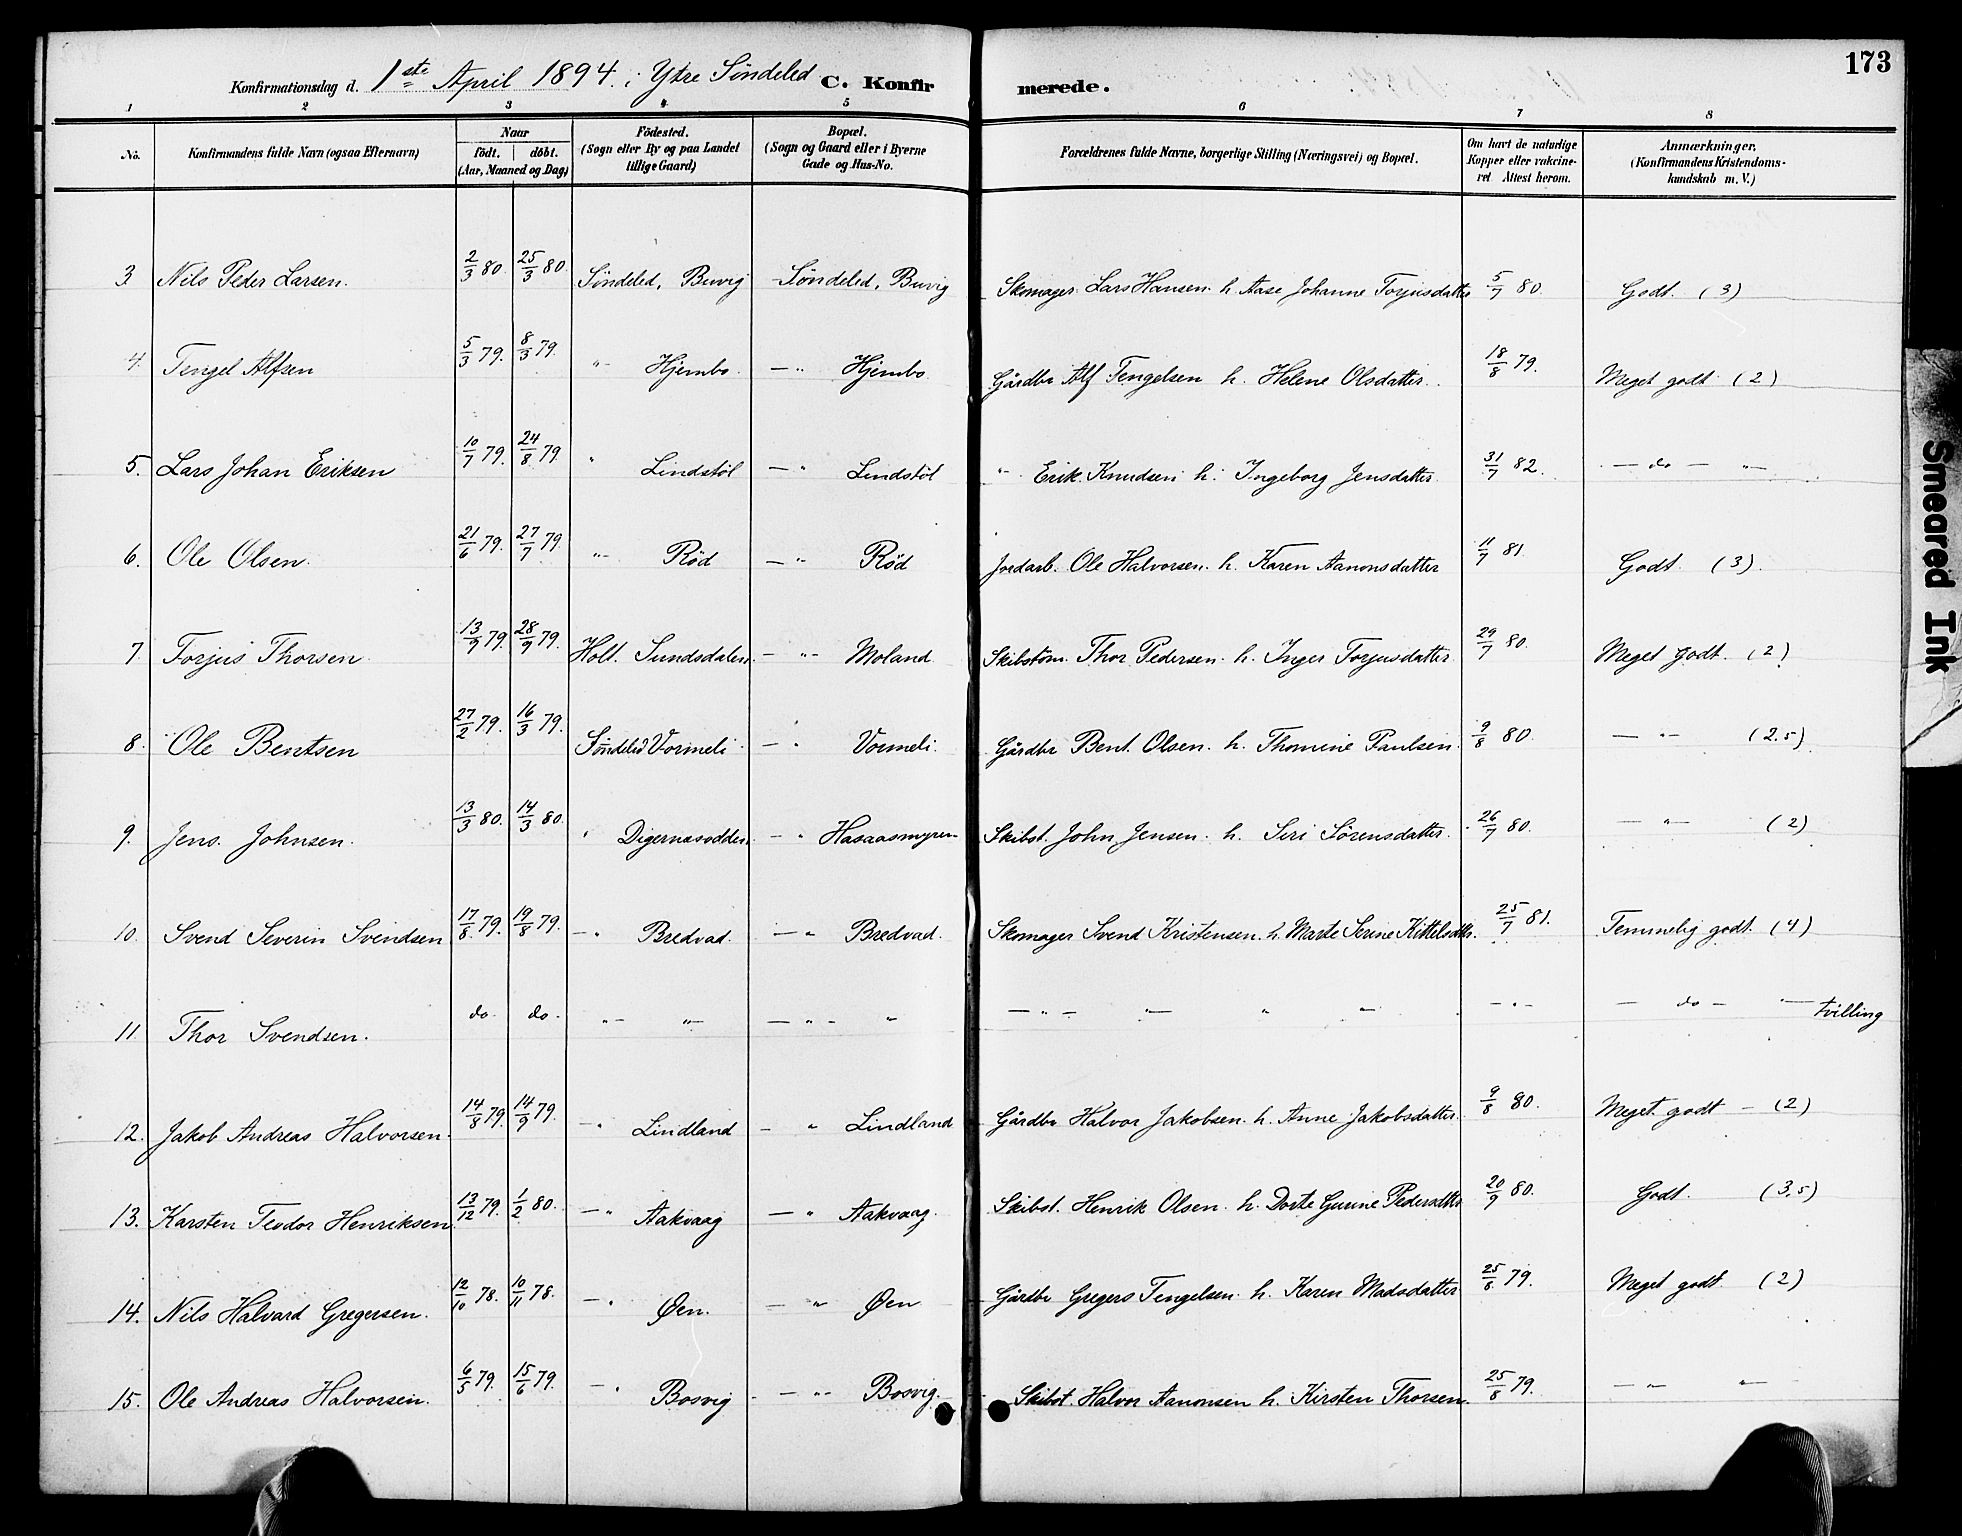 173
Konfirmationsdag d. 1ste April 1894. i Ytre Söndeled C. Konfirmerede.
1 2 3 4 5 6 7 8
No. | Konfirmandens fulde Navn (ogsaa Efternavn) | Naar födt. | döbt. (Aar, Maaned og Dag) | Födested. (Sogn eller By og paa Landet tillige Gaard) | Bopæl. (Sogn og Gaard eller i Byerne Gade og Hus-No. | Forældrenes fulde Navne, borgerlige Stilling (Næringsvei) og Bopæl. | Om havt de naturlige Kopper eller vakcineret Attest herom. | Anmærkninger. (Konfirmandens Kristendomskundskab m. V.)
3 Nils Peder Larsen. 2/3 80. 25/3 80. Söndeled, Buvig Söndeled, Buvig Skomager Lars Hansen h. Aase Johanne Torjusdatter 5/7 80. Godt. (3)
4. Tengel Alfsen 5/3 79. 8/3 79. " Hjembo. — " Hjembo. Gårdbr Alf Tengelsen h. Helene Olsdatter. 18/8 79. Meget godt (2)
5. Lars Johan Eriksen 10/7 79. 24/8 79. " Lindstöl — " Lindstöl " Erik Knudsen h. Ingeborg Jensdatter 31/7 82. — do — "
6. Ole Olsen. 21/6 79. 27/7 79. " Röd — " Röd Jordarb. Ole Halvorsen h. Karen Aanonsdatter 11/7 81 Godt. (3).
7 Torjus Thorsen. 13/9 79. 28/9 79. Holt. Sundsdalen — " Moland Skibstöm. Thor Pedersen. h. Inger Torjusdatter 29/7 80. Meget godt. (2)
8. Ole Bentsen 27/2 79. 16/3 79. Söndeled Vormeli — " Vormeli. Gårdbr Bent Olsen. h. Thomine Paulsen. 9/8 80. — " — (2.5)
9. Jens Johnsen. 13/3 80. 14/3 80. " Digernæsodden — " Hasaasmyren Skibst. John Jensen. h. Siri Sörensdatter. 26/7 80. — " — (2)
10. Svend Severin Svendsen 17/8 79. 19/8 79. — " Bredvad. — " Bredvad. Skomager Svend Kristensen. h. Marte Serine Kittelsdtr. 25/7 81. Temmelig godt. (4)
11 Thor Svendsen. do. do. " — " — " — " — " — " — " — " — " — do — " tvilling
12. Jakob Andreas Halvorsen. 14/8 79. 14/9 79. — " Lindland — " Lindland Gårdbr Halvor Jakobsen. h. Anne Jakobsdatter. 9/8 80. Meget godt — (2)
13. Karsten Teodor Henriksen. 13/12 79. 1/2 80. — " Aakvaag — " Aakvaag. Skibst. Henrik Olsen h. Dorte Gurine Pedersdtr 20/9 80. Godt. (3,5)
14. Nils Halvard Gregersen. 12/10 78. 10/11 78. — " Øen. — " Øen Gårdbr Gregers Tengelsen h. Karen Madsdatter 25/8 79. Meget godt (2)
15. Ole Andreas Halvorsen. 6/5 79. 15/6 79. — " Bosvig — " Bosvig. Skibst. Halvor Aanonsen h. Kirsten Thorsen. 25/8 79. — " — "
Smeared Ink